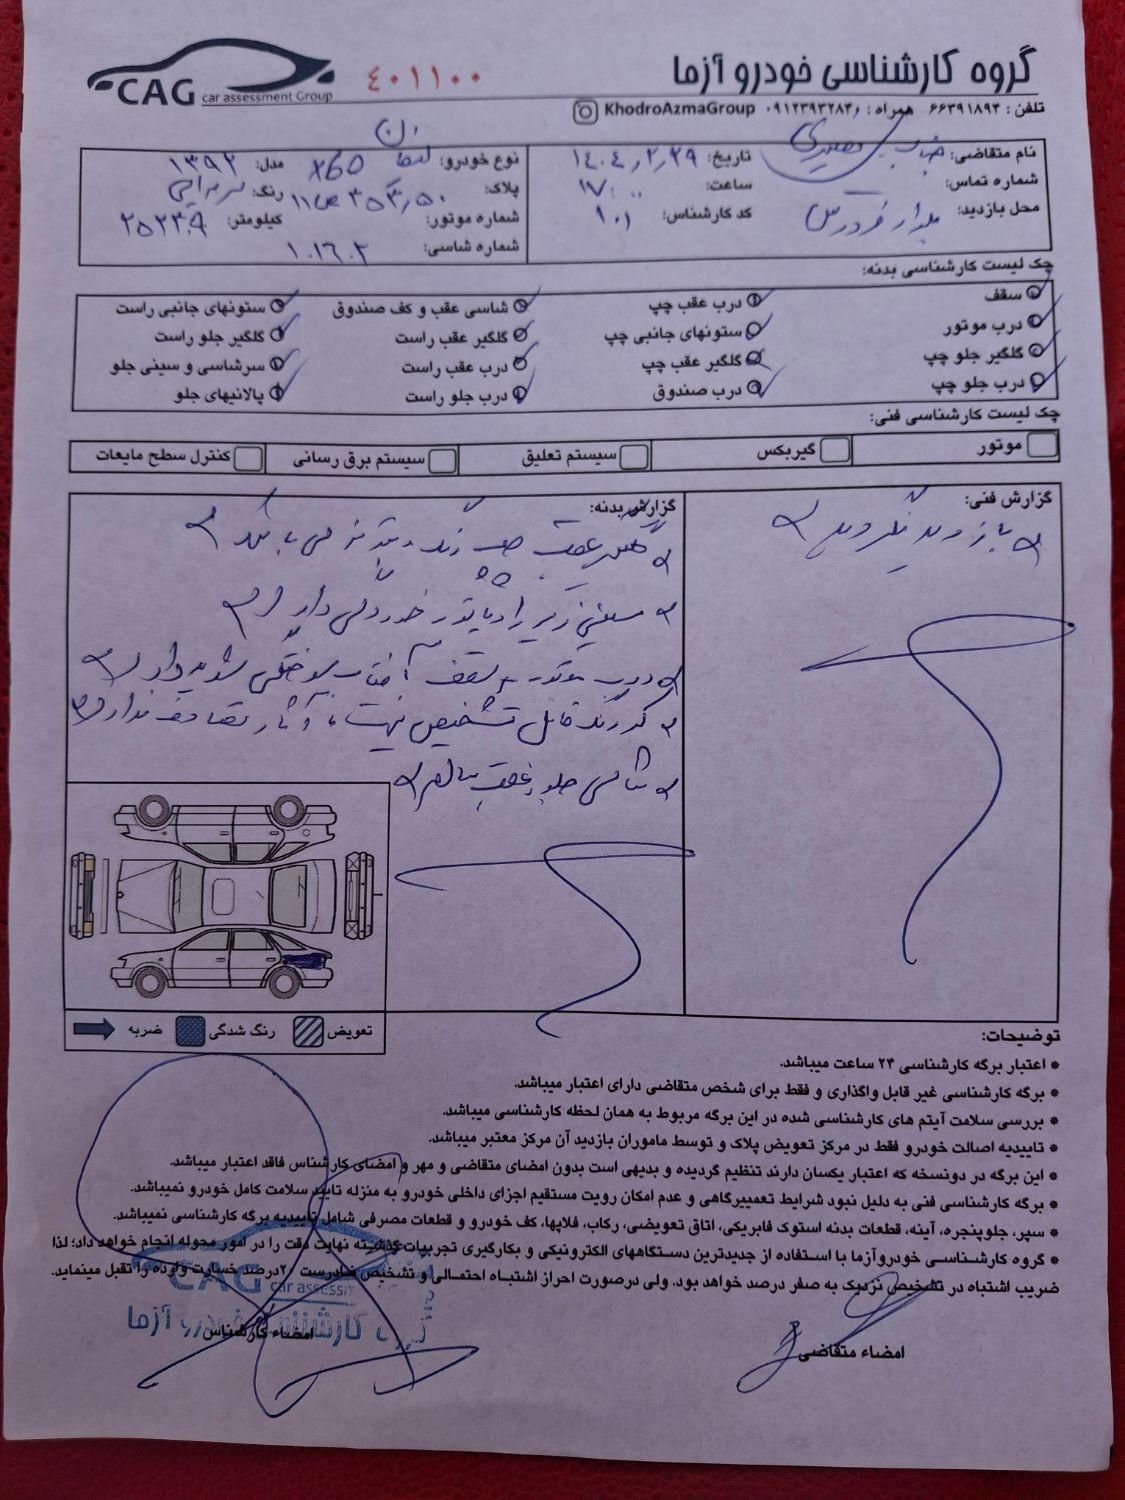 گروه کارشناسی خودرو آزما
CAG
car assessment Group
۴۰۱۱۰۰
تلفن : ۶۶۳۹۱۸۹۴ همراه : ۰۹۱۲۳۹۳۲۸۴
KhodroAzmaGroup
نام متقاضی: جناب
شماره تماس:
محل بازدید: بلوار فردوس
تاریخ: ۱۴۰۴/۲/۲۹
ساعت: ۱۷:۰۰
کد کارشناس: ۱۰۱
نوع خودرو: لیفان X60
مدل: ۱۳۹۲
پلاک:
رنگ:
شماره موتور:
کیلومتر: ۲۵۲۳۰۹
شماره شاسی: ۱۰۱۶۰۲
چک لیست کارشناسی بدنه:
سقف
درب موتور
گلگیر جلو چپ
درب جلو چپ
درب عقب چپ
ستونهای جانبی چپ
گلگیر عقب چپ
درب صندوق
شاسی عقب و کف صندوق
گلگیر عقب راست
درب عقب راست
درب جلو راست
ستونهای جانبی راست
گلگیر جلو راست
سرشاسی و سینی جلو
پالانیهای جلو
چک لیست کارشناسی فنی:
موتور
گیربکس
سیستم تعلیق
سیستم برق رسانی
کنترل سطح مایعات
گزارش فنی:
بازدید نگردید
گزارش بدنه:
گلگیر عقب چپ رنگ و بتونه می باشد
سینی زیر رادیاتور خوردگی دارد
درب موتور و سقف آفتاب سوختگی شدید دارد
کدرنگ قابل تشخیص نیست و آثار تصادف ندارد
شاسی جلو و عقب سالم
تعویض
رنگ شدگی
ضربه
توضیحات:
* اعتبار برگه کارشناسی ۲۴ ساعت میباشد.
* برگه کارشناسی غیر قابل واگذاری و فقط برای شخص متقاضی دارای اعتبار میباشد.
* بررسی سلامت آیتم های کارشناسی شده در این برگه مربوط به همان لحظه کارشناسی میباشد.
* تاییدیه اصالت خودرو فقط در مرکز تعویض پلاک و توسط ماموران بازدید آن مرکز معتبر میباشد.
* این برگه در دونسخه که اعتبار یکسان دارند تنظیم گردیده و بدیهی است بدون امضای متقاضی و مهر و امضای کارشناس فاقد اعتبار میباشد.
* برگه کارشناسی فنی به دلیل نبود شرایط تعمییرگاهی و عدم امکان رویت مستقیم اجزای داخلی خودرو به منزله تایید سلامت کامل خودرو نمیباشد.
* سپر، جلوپنجره، آینه، قطعات بدنه استوک فابریکی، اتاق تعویضی، رکاب، فلاپها، کف خودرو و قطعات مصرفی شامل تاییدیه برگه کارشناسی نمیباشد.
* گروه کارشناسی خودروآزما با استفاده از جدیدترین دستگاههای الکترونیکی و بکارگیری تجربیات گذشته نهایت دقت را در امور محوله انجام خواهد داد؛ لذا
ضریب اشتباه در تشخیص نزدیک به صفر درصد خواهد بود. ولی درصورت احراز اشتباه احتمالی و تشخیص نادرست ۲۰درصد خسارت وارده را تقبل مینماید.
امضاء متقاضی
امضاء کارشناس
CAG
car assessm
گروه کارشناسی خودرو آزما